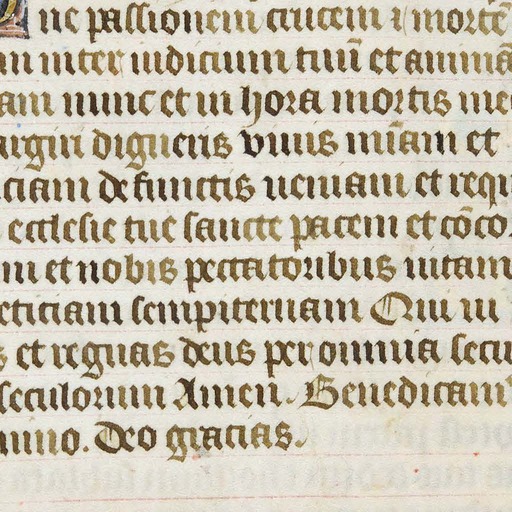 ne passionem crucem ⁊ mortē
inter iudicium tuū et animā
am nunc et in hora mortis me
digneris viuis mīam et
ciam defunctis ueniam et requi
ecclesie tue sancte pacem et cōco
et nobis peccatoribus uitam
eticiam sempiternam Qui
et regnas deus per omnia secu
seculorum Amen. Benedicam
mino. Deo gracias.